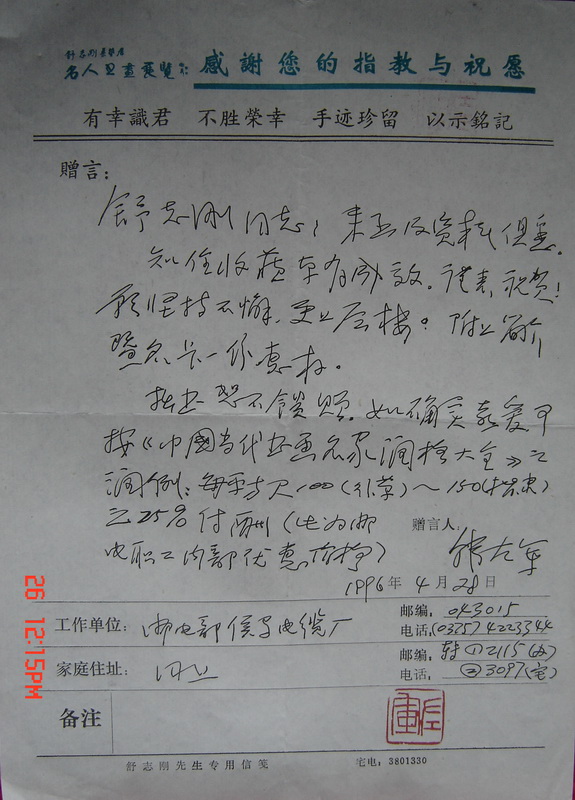 舒志刚
名人书画展览 感謝您的指教与祝愿
有幸識君 不胜榮幸 手迹珍留 以示銘記
赠言：
舒志刚同志：来函及资料俱悉。
知住收藏卓有成效。谨表祝贺！
愿坚持不懈，更上层楼。附上简介
暨名片一份惠存。
拙书恕不馈赠。如确实喜爱可
按《中國当代书画名家润格大全》之
润例：每平方尺100（行草）～150（楷隶）
之25%付酬（此为邮
电职工内部优惠价格）
赠言人
1996年4月28日
工作单位：邮电部侯马电缆厂
邮编，043015
电话，(0357)4223344
家庭住址：同上
邮编，转①2115(办)
电话，②3097(宅)
备注
舒志刚先生专用信笺 宅电：3801330
26 12:15PM